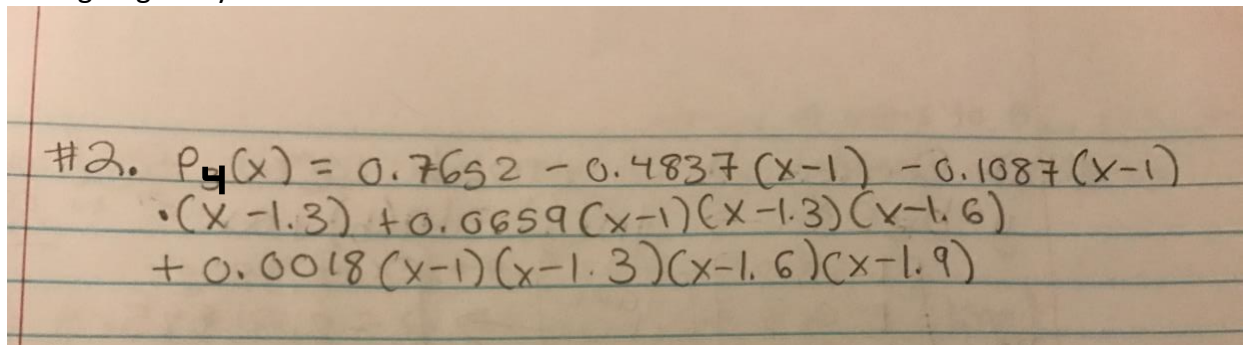 #2. P4(x) = 0.7652 - 0.4837(x-1) - 0.1087(x-1)
·(x-1.3) + 0.0659(x-1)(x-1.3)(x-1.6)
+ 0.0018(x-1)(x-1.3)(x-1.6)(x-1.9)